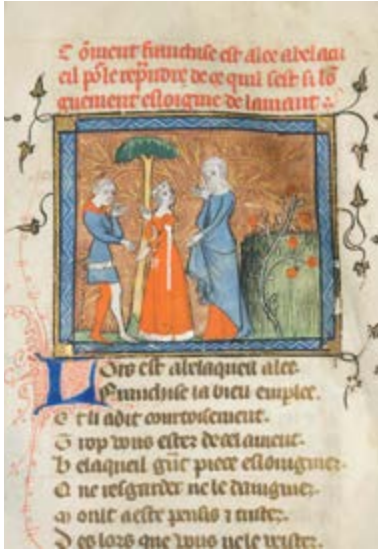 Cōment franchise est alee a belacu
eil pōr le repr̄ndre de ce quil sest si lō
guement esloignie de lamant
Lors est a belaqueil alee
Franchise la bien emplee.
Et li a dit courtoisement.
Trop vous estez de cel amant.
Belaqueil gr̄nt piece esloigniez.
Q̄ne resgarder ne le daigniez.
Mout a este pensis ⁊ tristes.
Des lors que vous ne le veistes.